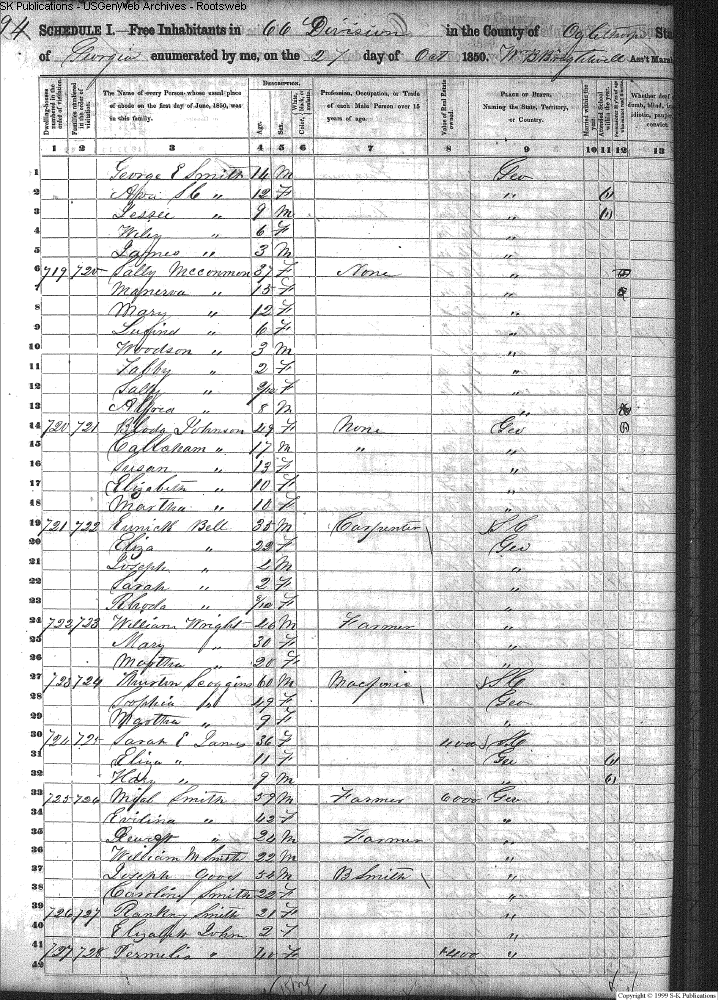 SK Publications - USGenWeb Archives - Rootsweb
94 SCHEDULE I.—Free Inhabitants in 66 Division in the County of Oglethorpe Sta
of Georgia enumerated by me, on the 27 day of Oct 1850. Ass't Mars
Dwelling-houses numbered in the order of visitation. Families numbered in the order of visitation. The Name of every Person whose usual place of abode on the first day of June, 1850, was in this family. DESCRIPTION. Age. Sex. White, black, or mulatto. Color, Profession, Occupation, or Trade of each Male Person over 15 years of age. Value of Real Estate owned. PLACE OF BIRTH. Naming the State, Territory, or Country. Married within the year. Attended School within the year. Whether deaf
1 2 3 4 5 6 7 8 9 10 11 12 13
1 George E Smith 14 M Geo
2 S C " 12 F " (1)
3 Jessee " 9 M " (1)
4 Wiley " 6 F "
5 James " 3 M "
6 719 720 Sally McConmon 37 F None "
7 Manerva " 15 F "
8 Mary " 12 F "
9 " 6 F "
10 Woodson " 3 M "
11 Tabby " 2 F "
12 Sally " F "
13 " 8 M "
14 720 721 Rhoda Johnson 49 F None Geo
15 Callaham " 17 M " "
16 Susan " 13 F "
17 Elizabeth " 10 F "
18 Martha " 10 F "
19 721 722 Bell 35 M Carpenter S C
20 Eliza " 22 F Geo
21 Joseph " M "
22 Sarah " 2 F "
23 Rhoda " F "
24 722 723 William Wright 46 M Farmer "
25 Mary " 30 F "
26 Martha " 20 F "
27 723 724 Scoggins 60 M S C
28 Sophia " 49 F Geo
29 Martha " 9 F "
30 724 725 Sarah E James 36 F 4000 S C
31 Eliza " 11 F Geo (1)
32 " 9 M " (1)
33 725 726 Smith 59 M Farmer 6000 Geo
34 Evilina " 42 F "
35 " 24 M Farmer "
36 William M Smith 22 M "
37 Joseph Good 54 M B Smith "
38 Caroline Smith 22 F "
39 726 727 Smith 21 F "
40 Elizabeth John 2 F "
41 727 728 Permelia " 40 F "
42
Copyright © 1999 S-K Publications